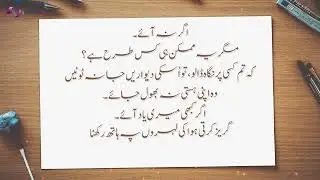 اگر نہ آئے۔
مگر یہ ممکن ہی کس طرح ہے؟
کہ تم کسی پر نگاہ ڈالو، تو اُسکی دیواریں جانہ ٹوٹیں
وہ اپنی ہستی نہ بھول جائے۔
اگر کبھی میری یاد آئے۔
گریز کرتی ہوا کی لہروں پہ ہاتھ رکھنا